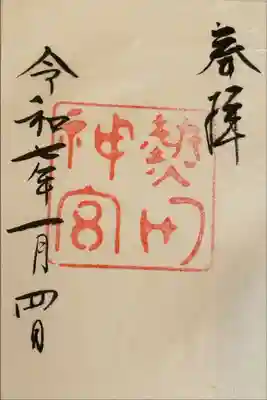 奉拝
熱田
神宮
令和七年一月四日